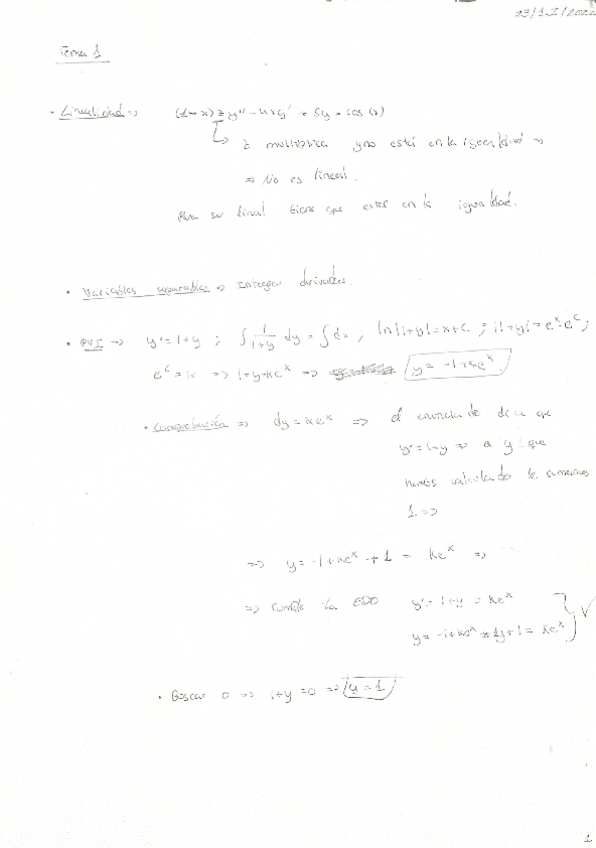 Tema 1
• Linealidad => (1-x) z y'' - 4xy' + 5y = cos(x)
z multiplica y no está en la igualdad =>
=> No es lineal.
Para ser lineal tiene que estar en la igualdad.
• Variables separables => Integrar derivadas
• PVI => y' = 1+y ; ∫ 1/(1+y) dy = ∫ dx , ln|1+y| = x+c ; |1+y| = e^x · e^c ;
e^c = k => 1+y = ke^x => y = -1+ke^x
• Comprobación => dy = ke^x => el enunciado dice que
y' = 1+y => a y que
hemos calculado le sumamos
1 =>
=> y = -1+ke^x + 1 = ke^x =>
=> cumple la EDO y' = 1+y = ke^x
y = -1+ke^x + 1 = ke^x
• Buscar 0 => 1+y = 0 => y = 1
1